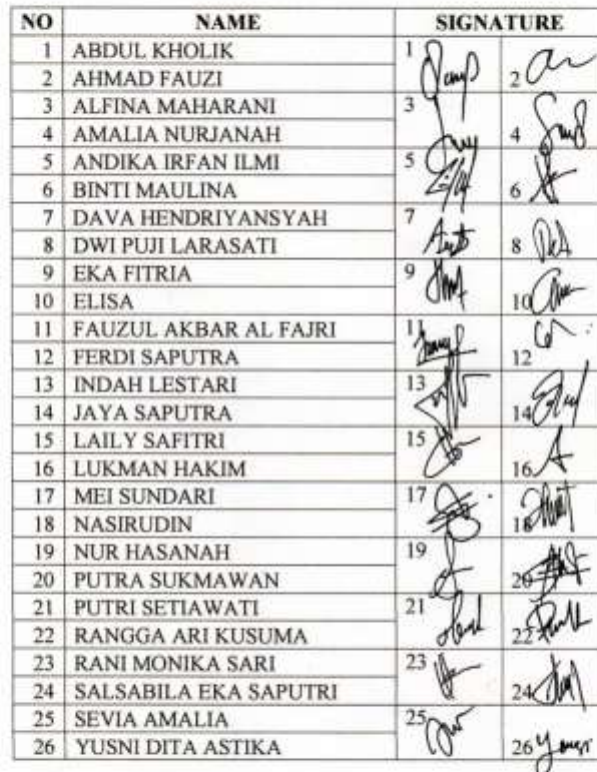 NO NAME SIGNATURE
1 ABDUL KHOLIK 1
2 AHMAD FAUZI 2
3 ALFINA MAHARANI 3
4 AMALIA NURJANAH 4
5 ANDIKA IRFAN ILMI 5
6 BINTI MAULINA 6
7 DAVA HENDRIYANSYAH 7
8 DWI PUJI LARASATI 8
9 EKA FITRIA 9
10 ELISA 10
11 FAUZUL AKBAR AL FAJRI 11
12 FERDI SAPUTRA 12
13 INDAH LESTARI 13
14 JAYA SAPUTRA 14
15 LAILY SAFITRI 15
16 LUKMAN HAKIM 16
17 MEI SUNDARI 17
18 NASIRUDIN 18
19 NUR HASANAH 19
20 PUTRA SUKMAWAN 20
21 PUTRI SETIAWATI 21
22 RANGGA ARI KUSUMA 22
23 RANI MONIKA SARI 23
24 SALSABILA EKA SAPUTRI 24
25 SEVIA AMALIA 25
26 YUSNI DITA ASTIKA 26